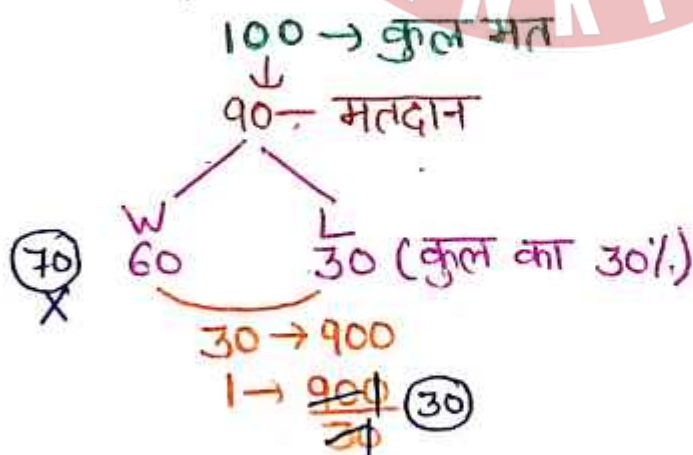 100 → कुल मत
↓
90 — मतदान
W L
70 60 30 (कुल का 30%)
X
30 → 900
1 → 900/30 30